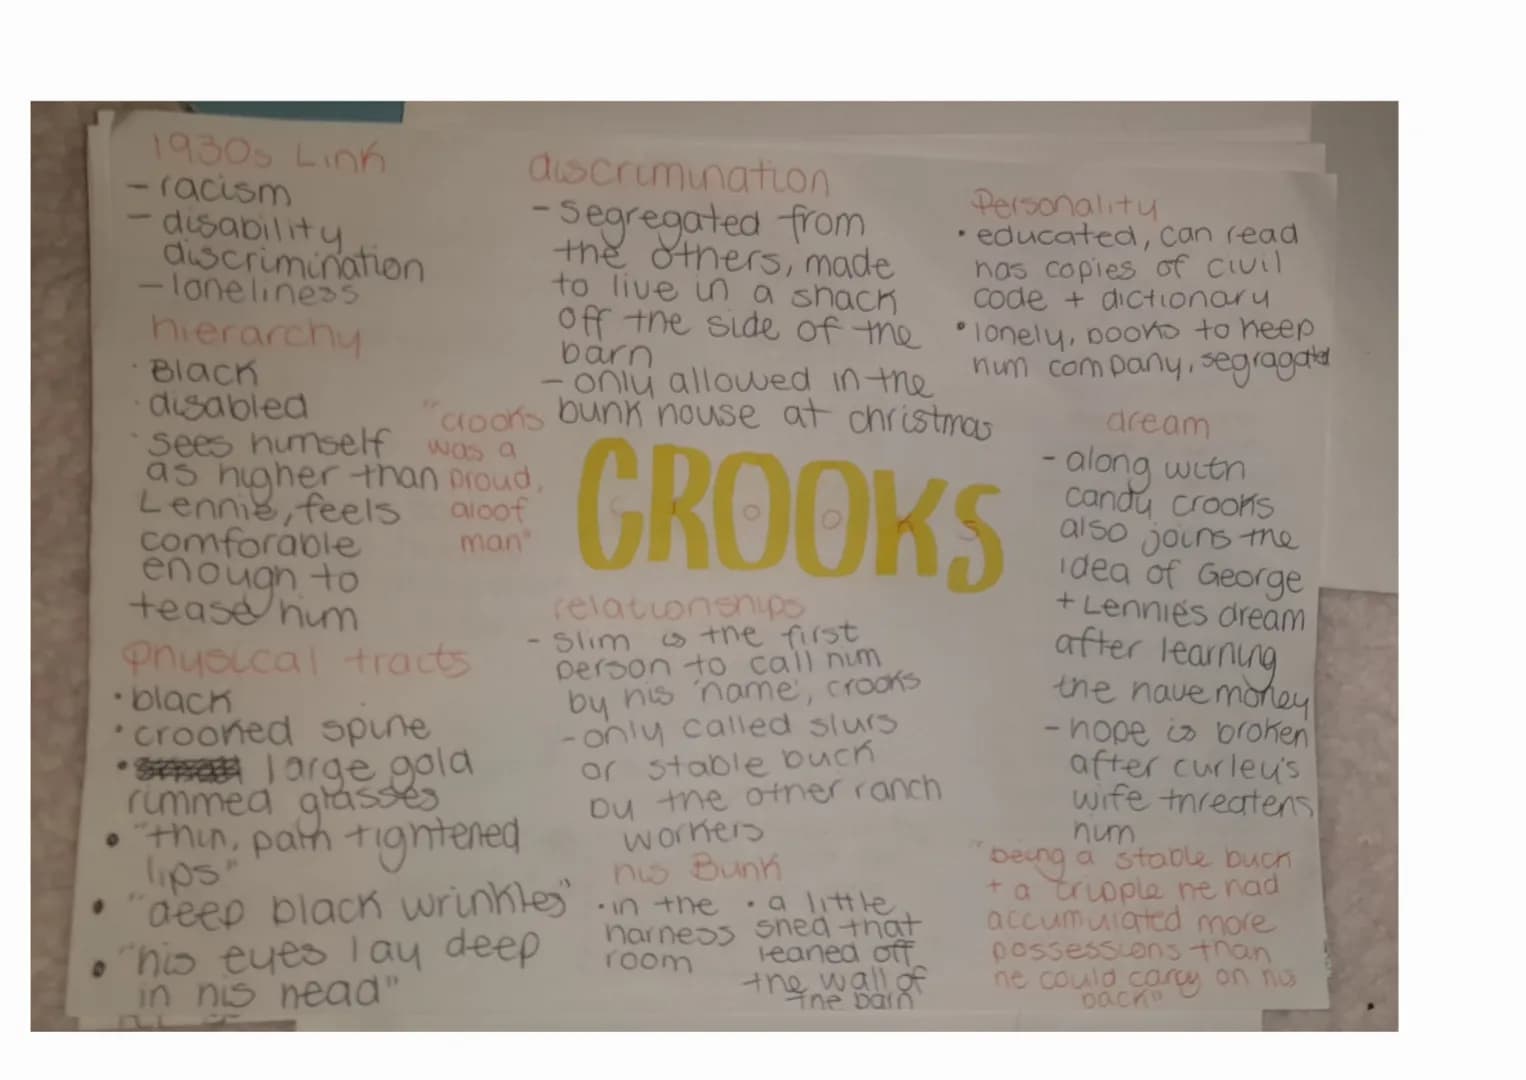 1930s Link
- racism
- disability
discrimination
- loneliness
hierarchy
· Black
· disabled
· sees himself
as higher than
Lennie, feels
comforable
enough to
tease him
"crooks
was a
proud,
aloof
man"
physical traits
· black
· crooked spine
· large gold
rimmed glasses
• "thin, pain tightened
lips"
• "deep black wrinkles"
• "his eyes lay deep
in his head"
discrimination
- segregated from
the others, made
to live in a shack
off the side of the
barn
- only allowed in the
bunk house at christmas
CROOKS
relationships
- slim is the first
person to call him
by his 'name', crooks
- only called slurs
or stable buck
by the other ranch
workers
his Bunk
· in the
harness
room
· a little
shed that
leaned off
the wall of
the barn
Personality
• educated, can read
has copies of civil
code + dictionary
• lonely, books to keep
him company, segragated
dream
- along with
candy crooks
also joins the
idea of George
+ Lennie's dream
after learning
the have money
- hope is broken
after curley's
wife threatens
him
"being a stable buck
+ a cripple he had
accumulated more
possessions than
he could carry on his
back"